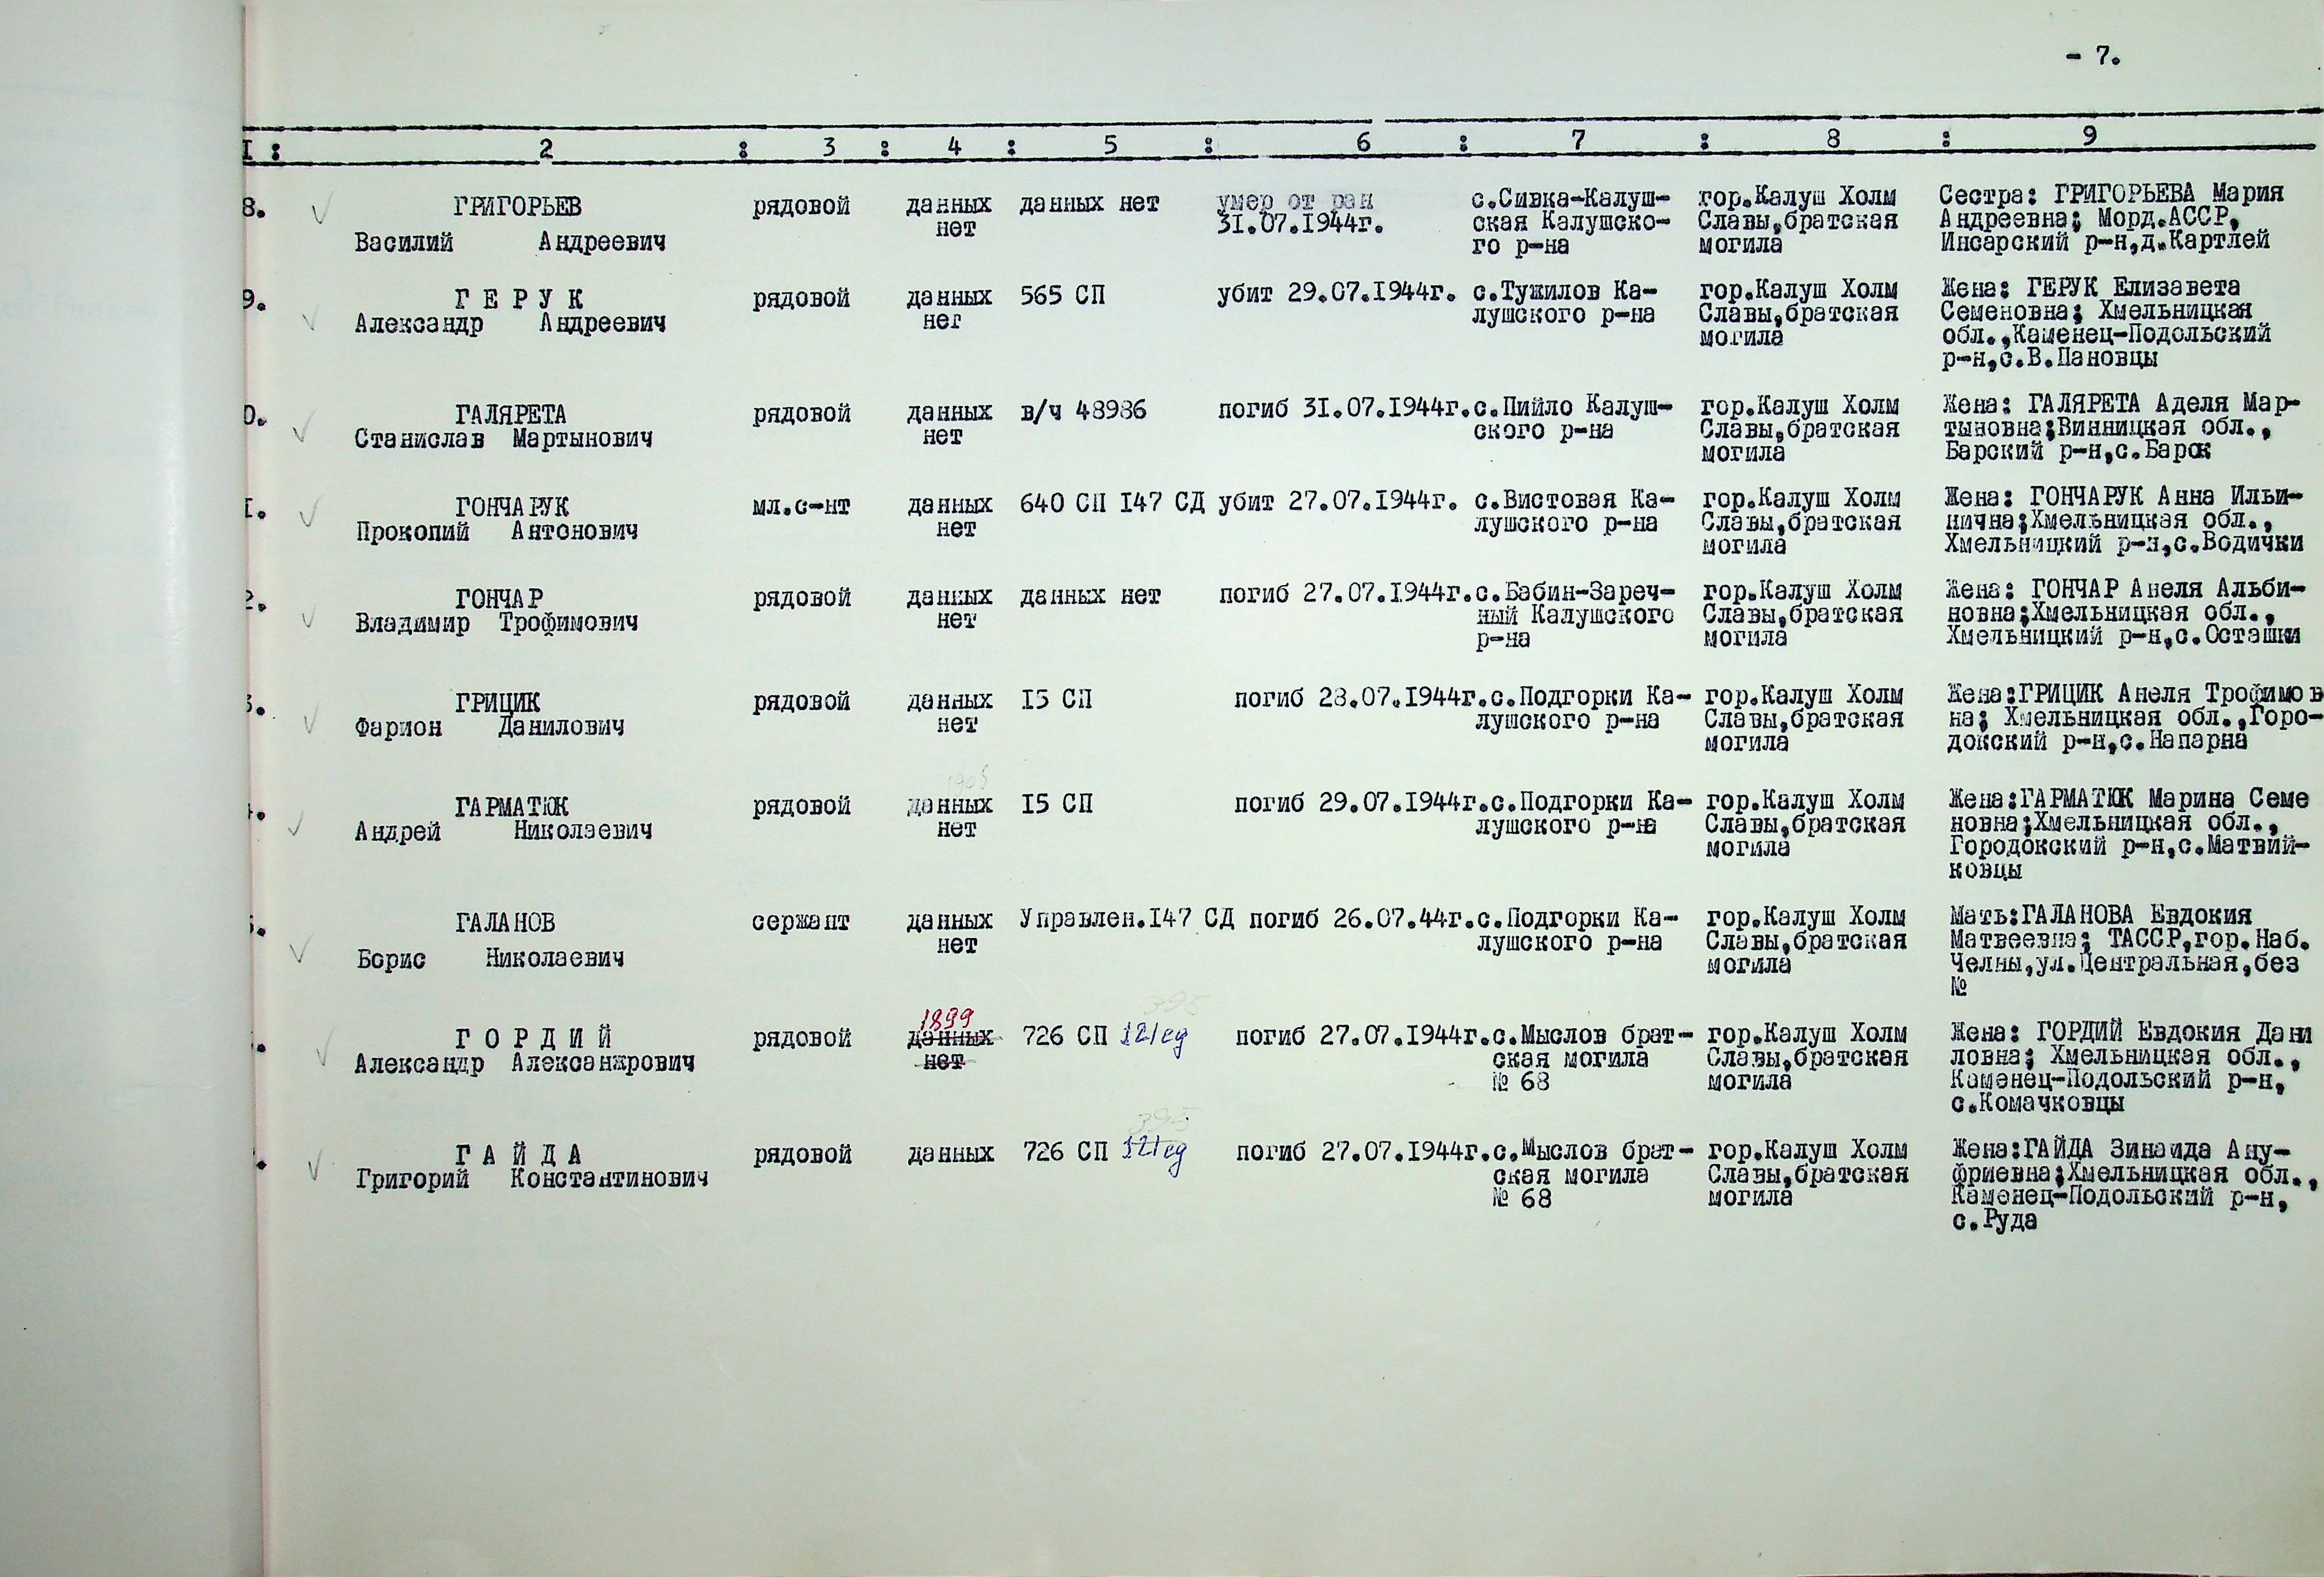 - 7.
I : 2 : 3 : 4 : 5 : 6 : 7 : 8 : 9
8. ГРИГОРЬЕВ рядовой данных данных нет умер от ран с.Сивка-Калуш- гор.Калуш Холм Сестра: ГРИГОРЬЕВА Мария
нет 31.07.1944г. ская Калушско- Славы,братская Андреевна; Морд.АССР,
Василий Андреевич го р-на могила Инсарский р-н,д.Картлей
9. Г Е Р У К рядовой данных 565 СП убит 29.07.1944г. с.Тужилов Ка- гор.Калуш Холм Жена: ГЕРУК Елизавета
Александр Андреевич нег лушского р-на Славы,братская Семеновна; Хмельницкая
могила обл.,Каменец-Подольский
р-н,с.В.Пановцы
0. ГАЛЯРЕТА рядовой данных в/ч 48986 погиб 31.07.1944г. с.Пийло Калуш- гор.Калуш Холм Жена: ГАЛЯРЕТА Аделя Мар-
Станислав Мартынович нет ского р-на Славы,братская тыновна;Винницкая обл.,
могила Барский р-н,с.Барок
I. ГОНЧАРУК мл.с-нт данных 640 СП I47 СД убит 27.07.1944г. с.Вистовая Ка- гор.Калуш Холм Жена: ГОНЧАРУК Анна Ильи-
Прокопий Антонович нет лушского р-на Славы,братская нична;Хмельницкая обл.,
могила Хмельницкий р-н,с.Водички
2. ГОНЧАР рядовой данных данных нет погиб 27.07.1944г. с.Бабин-Зареч- гор.Калуш Холм Жена: ГОНЧАР Анеля Альби-
Владимир Трофимович нет ный Калушского Славы,братская новна;Хмельницкая обл.,
р-на могила Хмельницкий р-н,с.Осташки
3. ГРИЦИК рядовой данных I5 СП погиб 28.07.1944г. с.Подгорки Ка- гор.Калуш Холм Жена:ГРИЦИК Анеля Трофимов
Фарион Данилович нет лушского р-на Славы,братская на; Хмельницкая обл.,Горо-
могила докский р-н,с.Напарна
1905
ГАРМАТЮК рядовой данных I5 СП погиб 29.07.1944г. с.Подгорки Ка- гор.Калуш Холм Жена:ГАРМАТЮК Марина Семе
Андрей Николаевич нет лушского р-на Славы,братская новна;Хмельницкая обл.,
могила Городокский р-н,с.Матвий-
ковцы
ГАЛАНОВ сержант данных Управлен.I47 СД погиб 26.07.44г. с.Подгорки Ка- гор.Калуш Холм Мать:ГАЛАНОВА Евдокия
нет лушского р-на Славы,братская Матвеевна; ТАССР,гор.Наб.
Борис Николаевич могила Челны,ул.Центральная,без
№
1899 395
Г О Р Д И Й рядовой данных 726 СП 121сд погиб 27.07.1944г. с.Мыслов брат- гор.Калуш Холм Жена: ГОРДИЙ Евдокия Дани
Александр Алексанжрович нет ская могила Славы,братская ловна; Хмельницкая обл.,
№ 68 могила Каменец-Подольский р-н,
с.Комачковцы
395
Г А Й Д А рядовой данных 726 СП 121сд погиб 27.07.1944г. с.Мыслов брат- гор.Калуш Холм Жена:ГАЙДА Зинаида Ану-
Григорий Константинович ская могила Славы,братская фриевна;Хмельницкая обл.,
№ 68 могила Каменец-Подольский р-н,
с.Руда